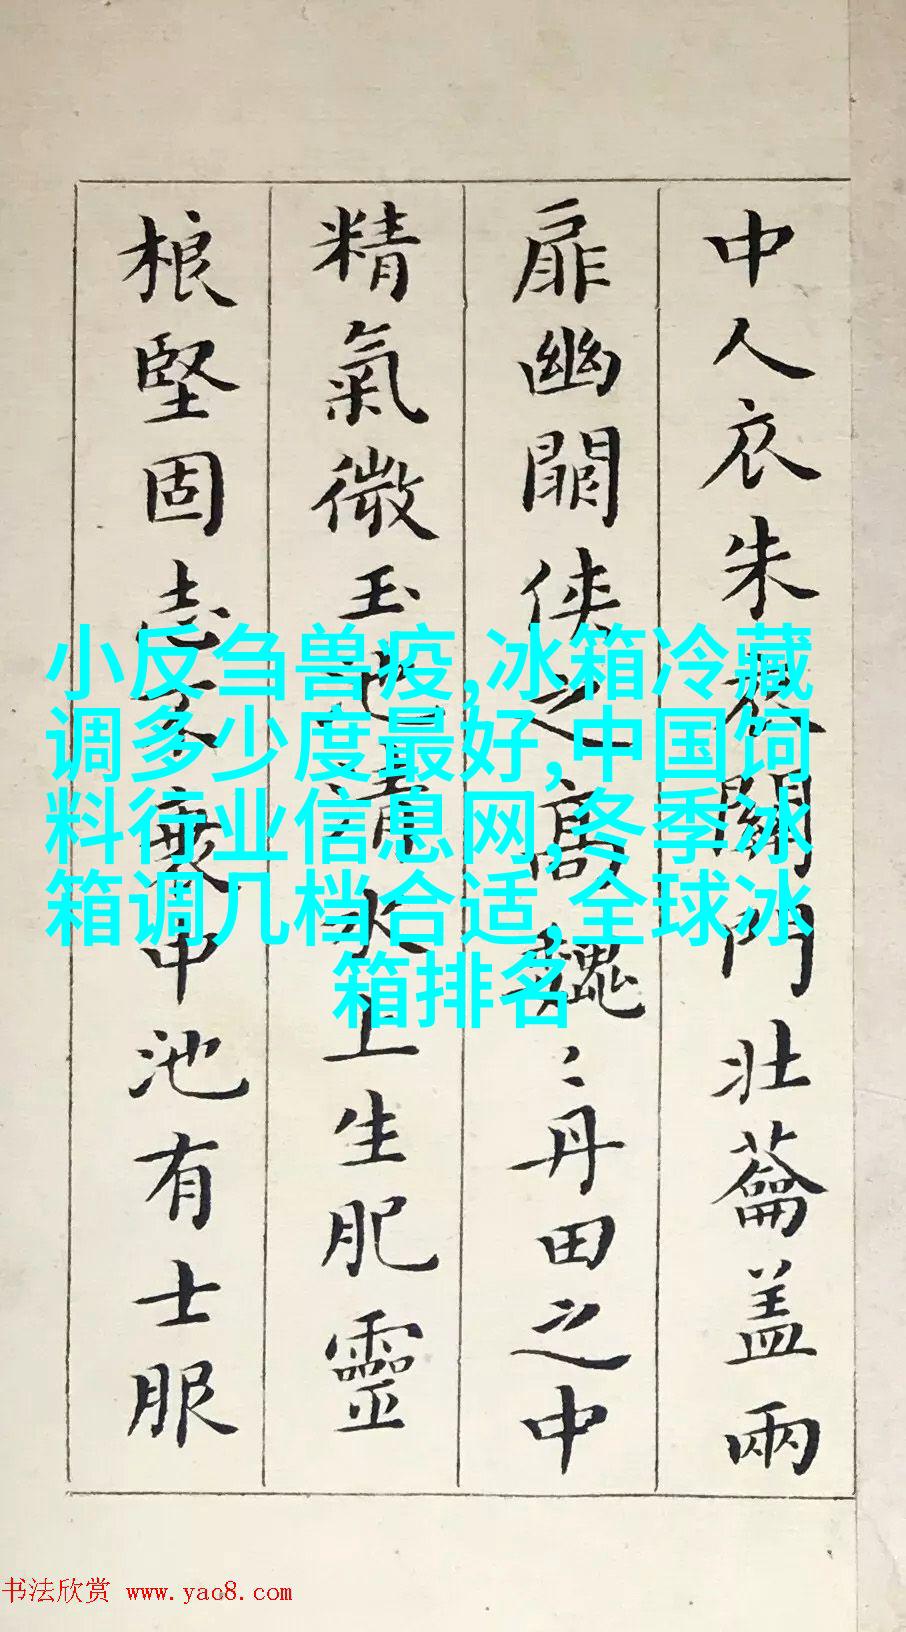 中人衣朱衣關門壯蘥盖兩
扉幽關侠之高巍〻丹田之中
精氣微玉池清水上生肥靈
根堅固志不衰中池有士服
小反刍兽疫,冰箱冷藏
调多少度最好,中国饲
料行业信息网,冬季冰
箱调几档合适,全球冰
箱排名
书法欣赏 www.yac8.com